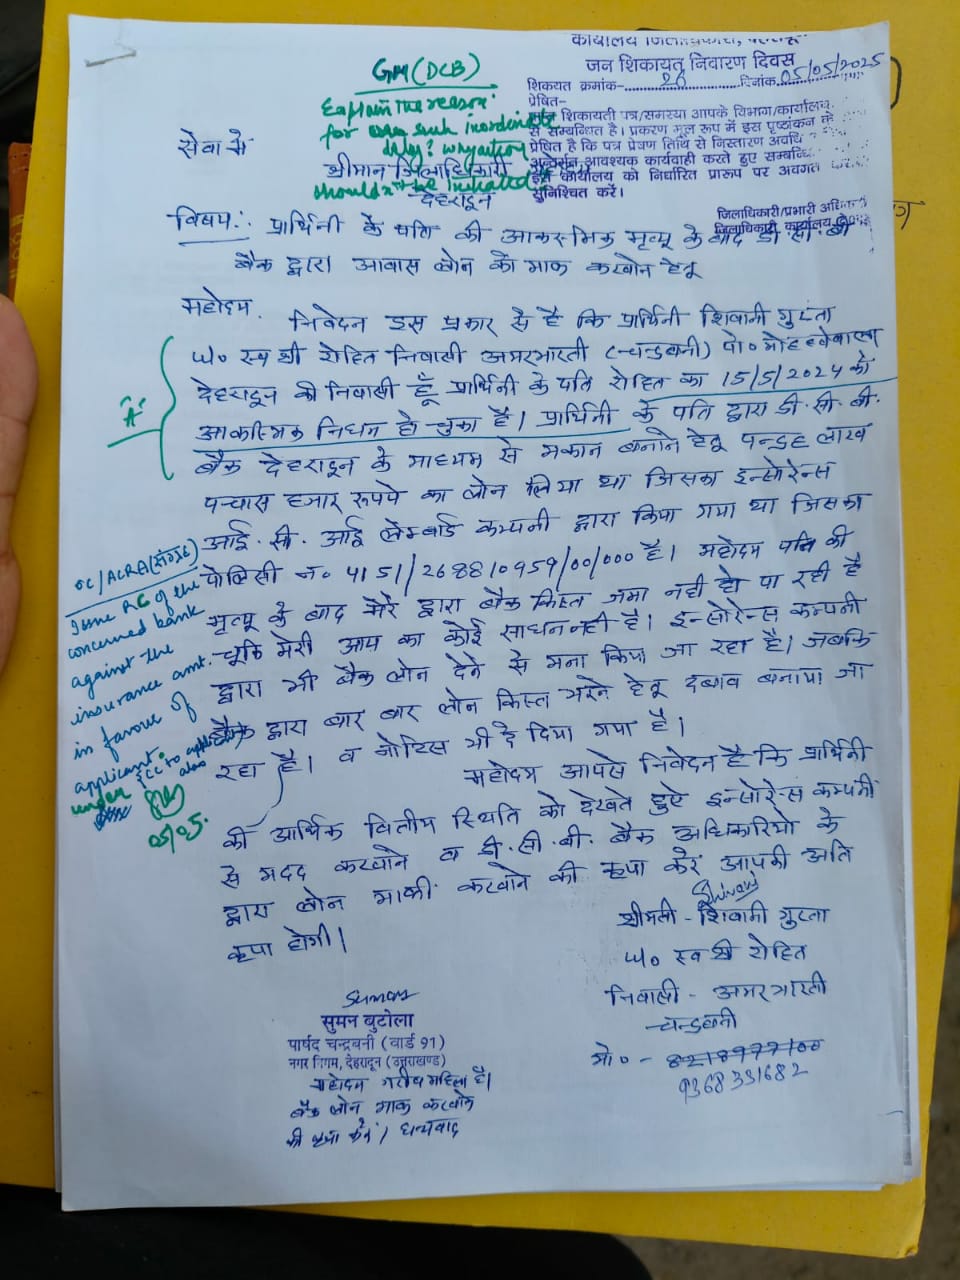 कार्यालय जिलाधिकारी,
जन शिकायत निवारण दिवस
शिकयत क्रमांक- 26 दिनांक 05/05/2025
प्रेषित-
जन शिकायती पत्र/समस्या आपके विभाग/कार्यालय
से सम्बन्धित है। प्रकरण मूल रूप में इस पृष्ठांकन के
प्रेषित है कि पत्र प्रेषण तिथि से निस्तारण अवधि
अन्तर्गत आवश्यक कार्यवाही करते हुए सम्बन्धि
इस कार्यालय को निर्धारित प्रारूप पर अवगत
सुनिश्चित करें।
जिलाधिकारी/प्रभारी अधि
जिलाधिकारी कार्यालय
GM (DCB)
Explain the reason
for such inordinate
delay? why action
shouldn't be initiated
सेवा में
श्रीमान जिलाधिकारी
देहरादून
विषय:- प्रार्थिनी के पति की आकस्मिक मृत्यू के बाद डी.सी.बी
बैंक द्वारा आवास लोन को माफ करवाने हेतू
महोदय.
निवेदन इस प्रकार से है कि प्रार्थिनी शिवानी गुप्ता
w/o स्व श्री रोहित निवासी अमरभारती (चन्द्रबनी) पो० मोहब्बेवाला
देहरादून की निवासी हूँ प्रार्थिनी के पति रोहित का 15/5/2024 को
आकस्मिक निधन हो चुका है। प्रार्थिनी के पति द्वारा डी.सी.बी.
बैंक देहरादून के माध्यम से मकान बनाने हेतू पन्द्रह लाख
पच्चास हजार रूपये का लोन लिया था जिसका इन्सोरेन्स
आई.सी.आई लेम्बार्ड कम्पनी द्वारा किया गया था जिसका
पोलिसी न० 4151/268810959/00/000 है। महोदय पति की
मृत्यू के बाद मेरे द्वारा बैंक किस्त जमा नही हो पा रही है
चूकि मेरी आय का कोई साधन नही है। इन्सोरेन्स कम्पनी
द्वारा भी बैंक लोन देने से मना किया जा रहा है। जबकि
बैंक द्वारा बार बार लोन किस्त भरने हेतू दबाव बनाया जा
रहा है। व नोटिस भी दे दिया गया है।
महोदय आपसे निवेदन है कि प्रार्थिनी
की आर्थिक वित्तीय स्थिति को देखते हुए इन्सोरेन्स कम्पनी
से मदद करवाने व डी.सी.बी. बैंक अधिकारियो के
द्वारा लोन माफी करवाने की कृपा करें आपकी अति
कृपा होगी।
"A"
OC/ACRA(संग्रह)
Issue RC of the
concerned bank
against the
insurance amt.
in favour of
applicant.
under CC to applicant
also
05/05.
Shivani
श्रीमती - शिवानी गुप्ता
w/o स्व श्री रोहित
निवासी - अमरभारती
चन्द्रबनी
मो० - 8218977100
9368331682
Suman
सुमन बुटोला
पार्षद चन्द्रबनी (वार्ड 91)
नगर निगम, देहरादून (उत्तराखण्ड)
महोदय गरीब महिला है।
बैंक लोन माफ करवाने
की कृपा करें। धन्यवाद